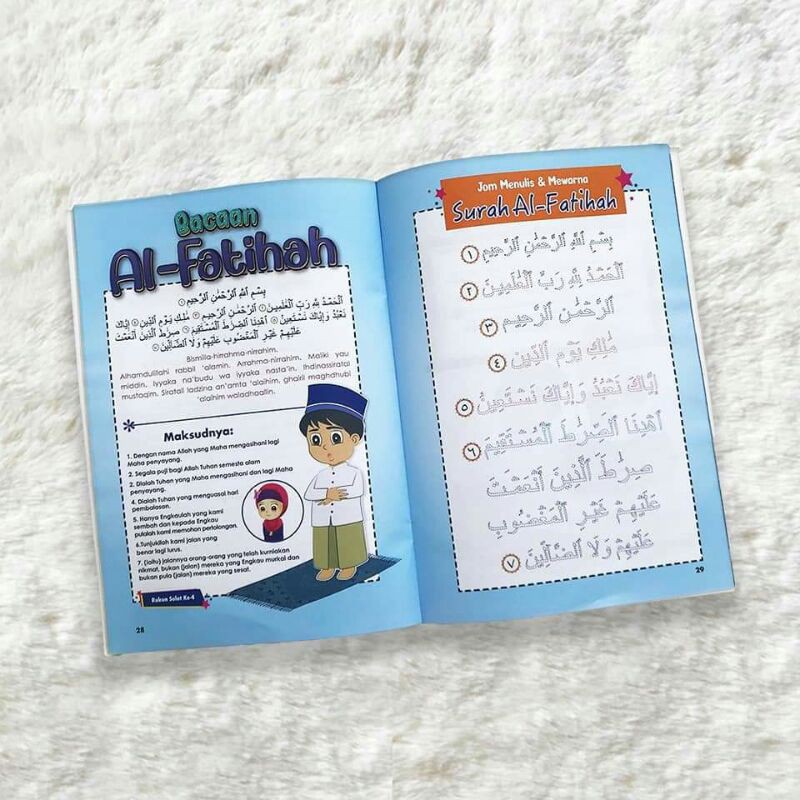 Bacaan
Al-Fatihah
بِسْمِ اللَّهِ الرَّحْمَٰنِ الرَّحِيمِ ١
الْحَمْدُ لِلَّهِ رَبِّ الْعَالَمِينَ ٢ الرَّحْمَٰنِ الرَّحِيمِ ٣ مَالِكِ يَوْمِ الدِّينِ ٤ إِيَّاكَ
نَعْبُدُ وَإِيَّاكَ نَسْتَعِينُ ٥ اهْدِنَا الصِّرَاطَ الْمُسْتَقِيمَ ٦ صِرَاطَ الَّذِينَ أَنْعَمْتَ
عَلَيْهِمْ غَيْرِ الْمَغْضُوبِ عَلَيْهِمْ وَلَا الضَّالِّينَ
Bismilla-hirrahma-nirrahim.
Alhamdulillahi rabbil 'alamin. Arrahma-nirrahim. Maliki yau
middin. Iyyaka na'budu wa iyyaka nasta'in. Ihdinassiratal
mustaqim. Siratal ladzina an'amta 'alaihim, ghairil maghdhubi
'alaihim waladhaallin.
Maksudnya:
1. Dengan nama Allah yang Maha mengasihani lagi
Maha penyayang.
2. Segala puji bagi Allah Tuhan semesta alam
2. Dialah Tuhan yang Maha mengasihani dan lagi Maha
penyayang.
4. Dialah Tuhan yang menguasai hari
pembalasan.
5. Hanya Engkaulah yang kami
sembah dan kepada Engkau
pulalah kami memohon pertolongan.
6.Tunjukilah kami jalan yang
benar lagi lurus.
7. (Iaitu) jalannya orang-orang yang telah kurniakan
nikmat, bukan (jalan) mereka yang Engkau murkai dan
bukan pula (jalan) mereka yang sesat.
Rukun Solat Ke-4
28
Jom Menulis & Mewarna
Surah Al-Fatihah
١ بِسْمِ اللَّهِ الرَّحْمَٰنِ الرَّحِيمِ
٢ الْحَمْدُ لِلَّهِ رَبِّ الْعَالَمِينَ
٣ الرَّحْمَٰنِ الرَّحِيمِ
٤ مَالِكِ يَوْمِ الدِّينِ
٥ إِيَّاكَ نَعْبُدُ وَإِيَّاكَ نَسْتَعِينُ
٦ اهْدِنَا الصِّرَاطَ الْمُسْتَقِيمَ
صِرَاطَ الَّذِينَ أَنْعَمْتَ
عَلَيْهِمْ غَيْرِ الْمَغْضُوبِ
٧ عَلَيْهِمْ وَلَا الضَّالِّينَ
29